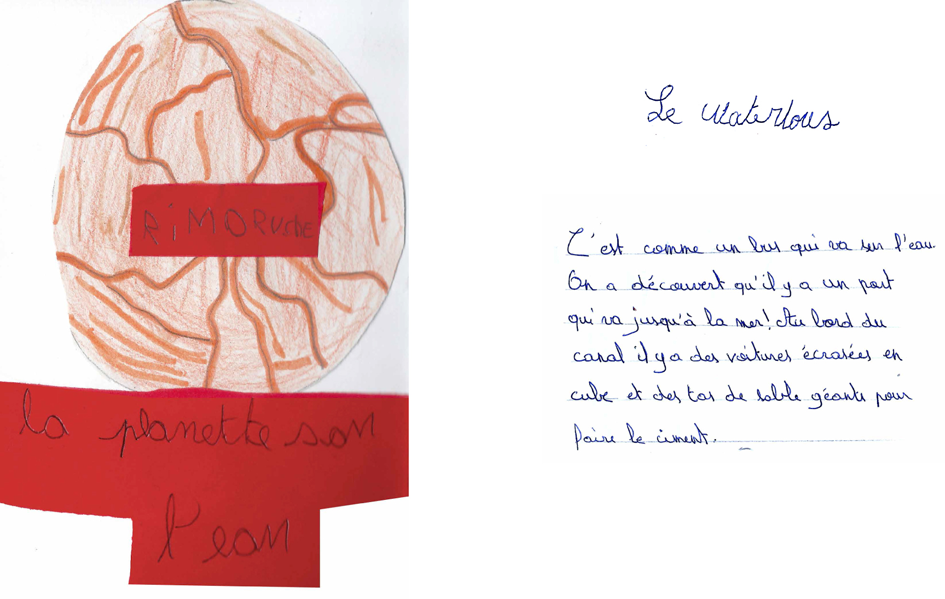 la planette son
l'eau
Le Waterbus
C'est comme un bus qui va sur l'eau.
On a découvert qu'il y a un port
qui va jusqu'à la mer! Au bord du
canal il y a des voitures écrasées en
cube et des tas de sable géants pour
faire le ciment.